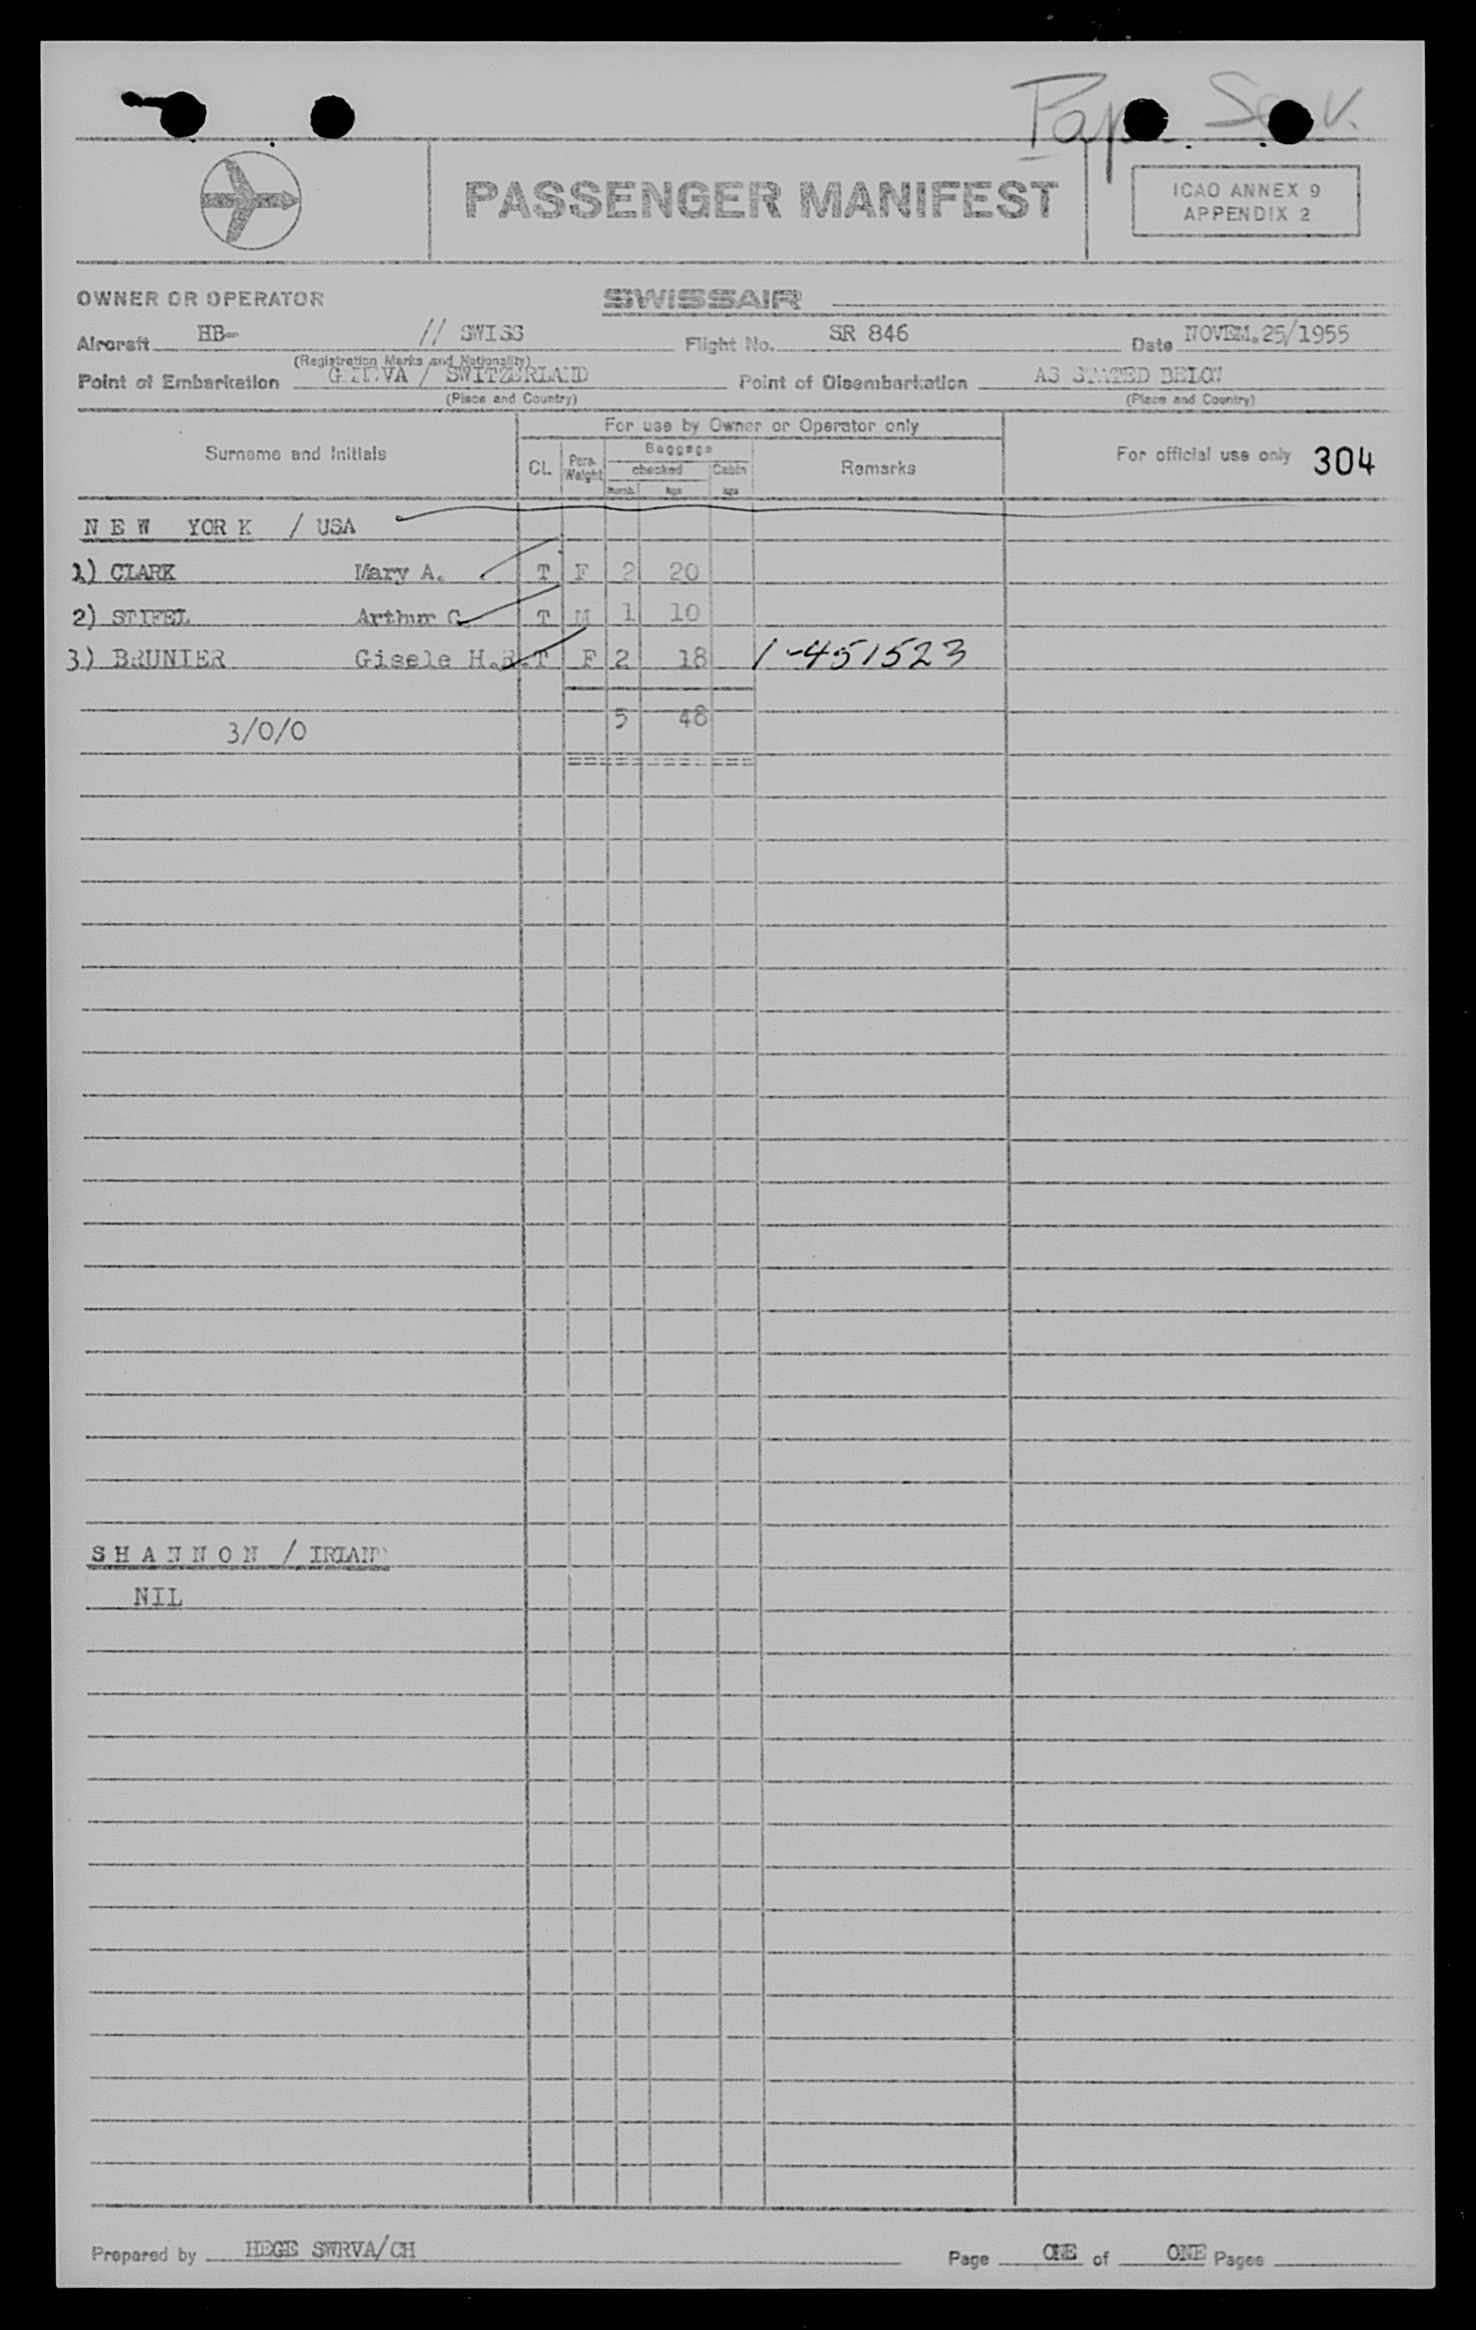 PASSENGER MANIFEST
ICAO ANNEX 9
APPENDIX 2
OWNER OR OPERATOR SWISSAIR
Aircraft HB- // SWISS Flight No. SR 846 Date NOVEM.25/1955
(Registration Marks and Nationality)
Point of Embarkation GENEVA / SWITZERLAND Point of Disembarkation AS STATED BELOW
(Place and Country) (Place and Country)
For use by Owner or Operator only
Surname and Initials CL. Pers. Weight Baggage checked Cabin Remarks For official use only 304
Numb. kgs kgs
NEW YORK / USA
1) CLARK Mary A. T F 2 20
2) STIFEL Arthur C. T M 1 10
3) BRUNIER Gisele H.R. T F 2 18 1-451523
5 48
3/0/0
SHANNON / IRLAND
NIL
Prepared by HEGE SWRVA/CH Page ONE of ONE Pages